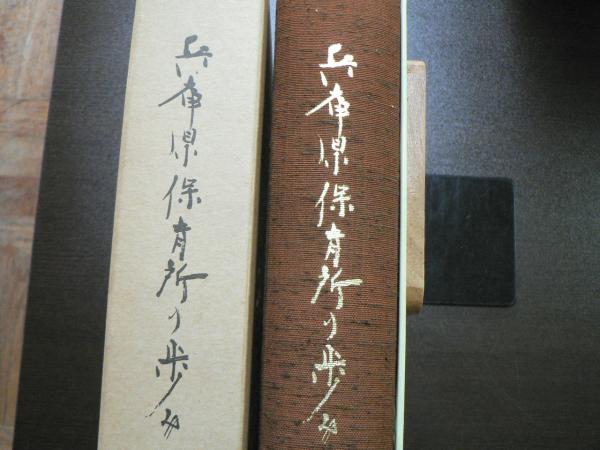 兵庫県保育所の歩み
兵庫県保育所の歩み